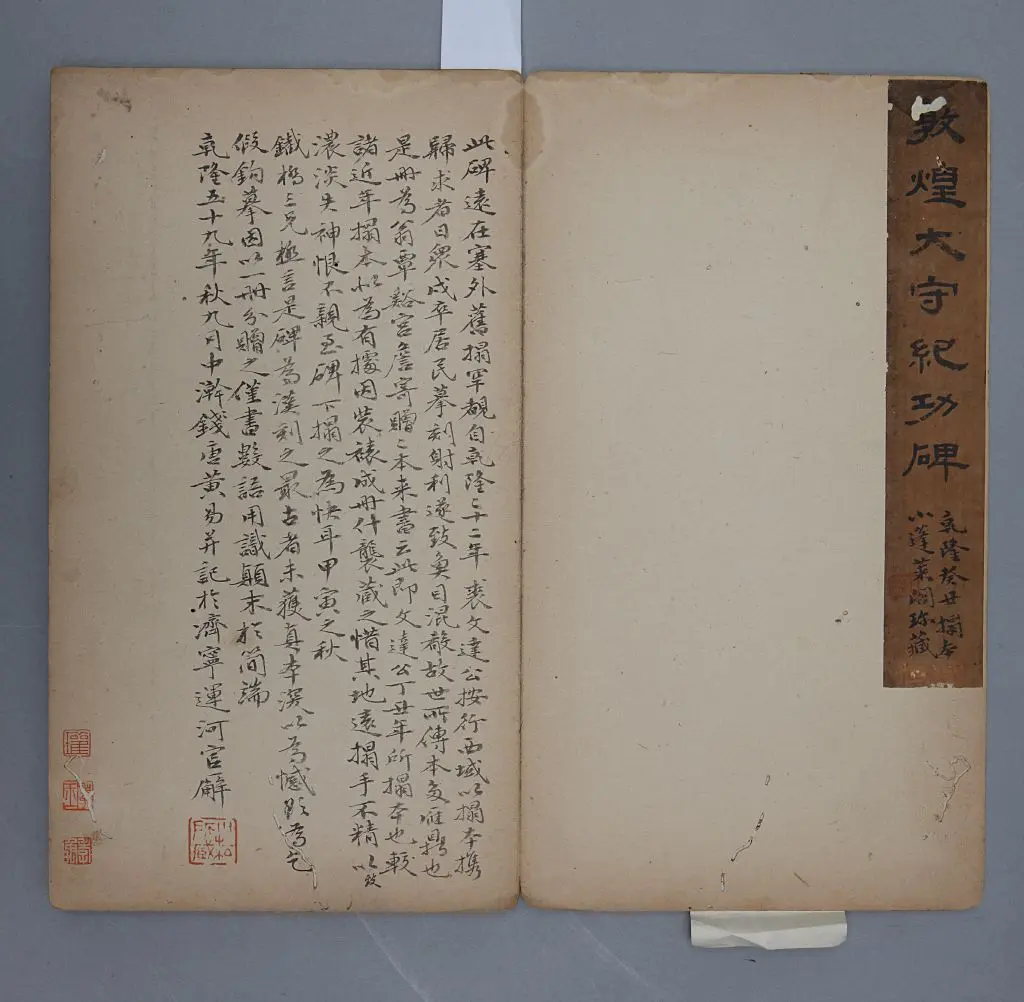 敦煌太守紀功碑
乾隆癸丑搨本
小蓬萊閣珍藏
此碑遠在塞外舊搨罕覯自乾隆二十二年裘文達公按行西域以搨本攜
歸求者日衆戍卒居民摹刻射利遂致魚目混殽故世所傳本多雁鼎也
是冊為翁覃谿宮詹寄贈之本来書云此即文達公丁丑年所搨本也較
諸近年搨本似為有據因裝褾成冊什襲藏之惜其地遠搨手不精以致
濃淡失神恨不親至碑下搨之為快耳甲寅之秋
鐵橋三兄極言是碑為漢刻之最古者未獲真本深以為憾為乞
假鉤摹因以一冊分贈之僅書數語用識顛末於簡端
乾隆五十九年秋九月中澣錢唐黃易并記於濟寧運河官廨